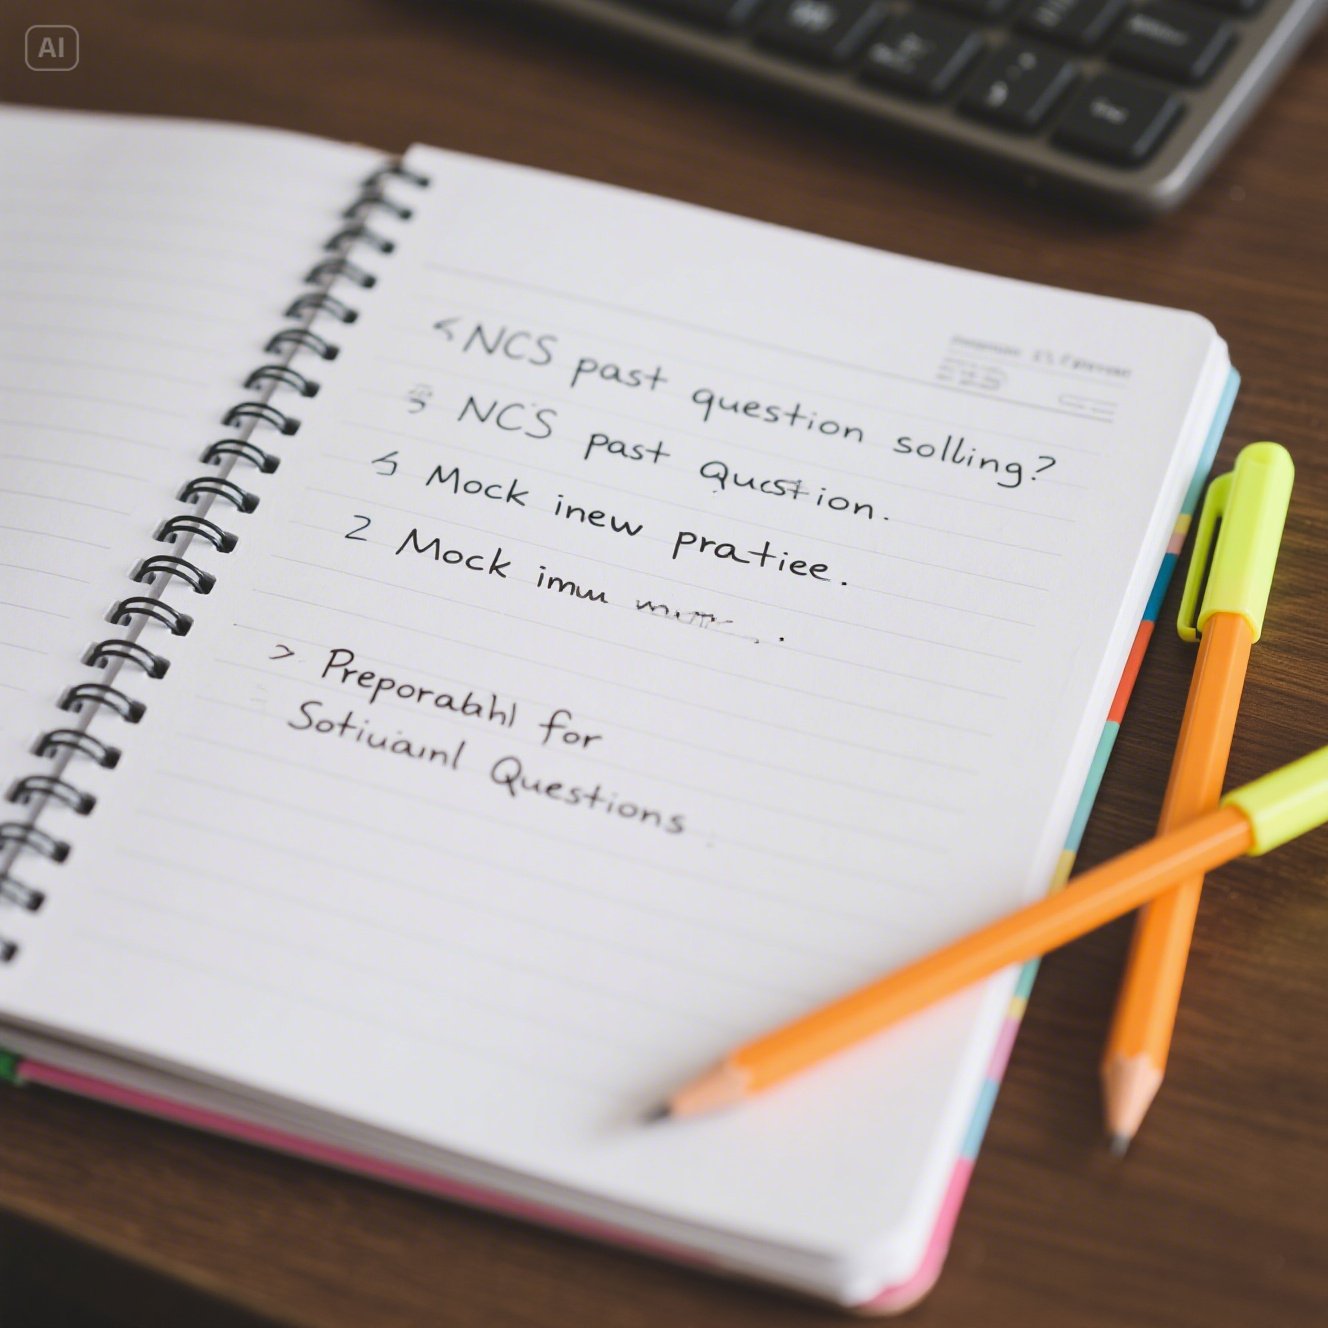 AI
NCS past question solling?
NCS past Qucstion.
5 Mock inew pratiee.
2 Mock imu
> Preporabhl for
Sotiuainl Questions